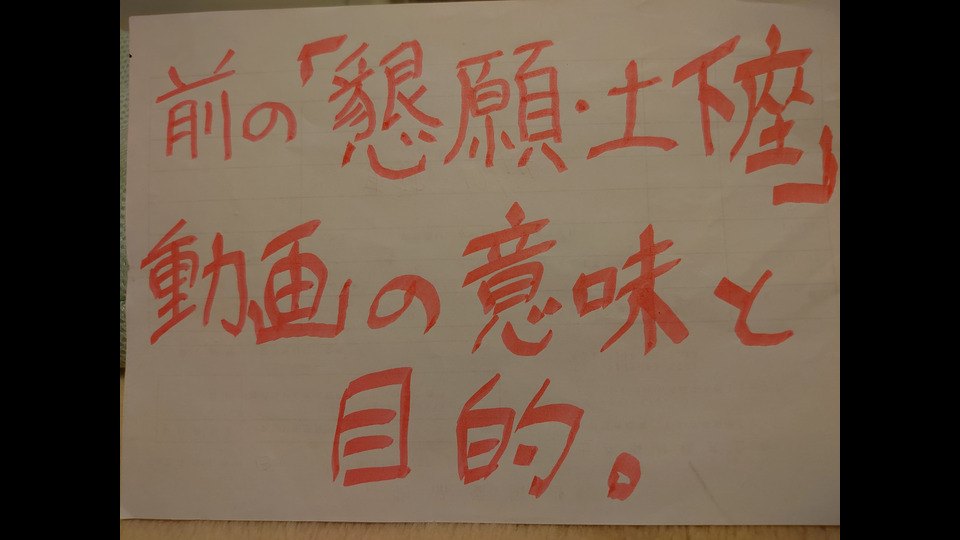 前の「懇願・土下座」
動画の意味と
目的。